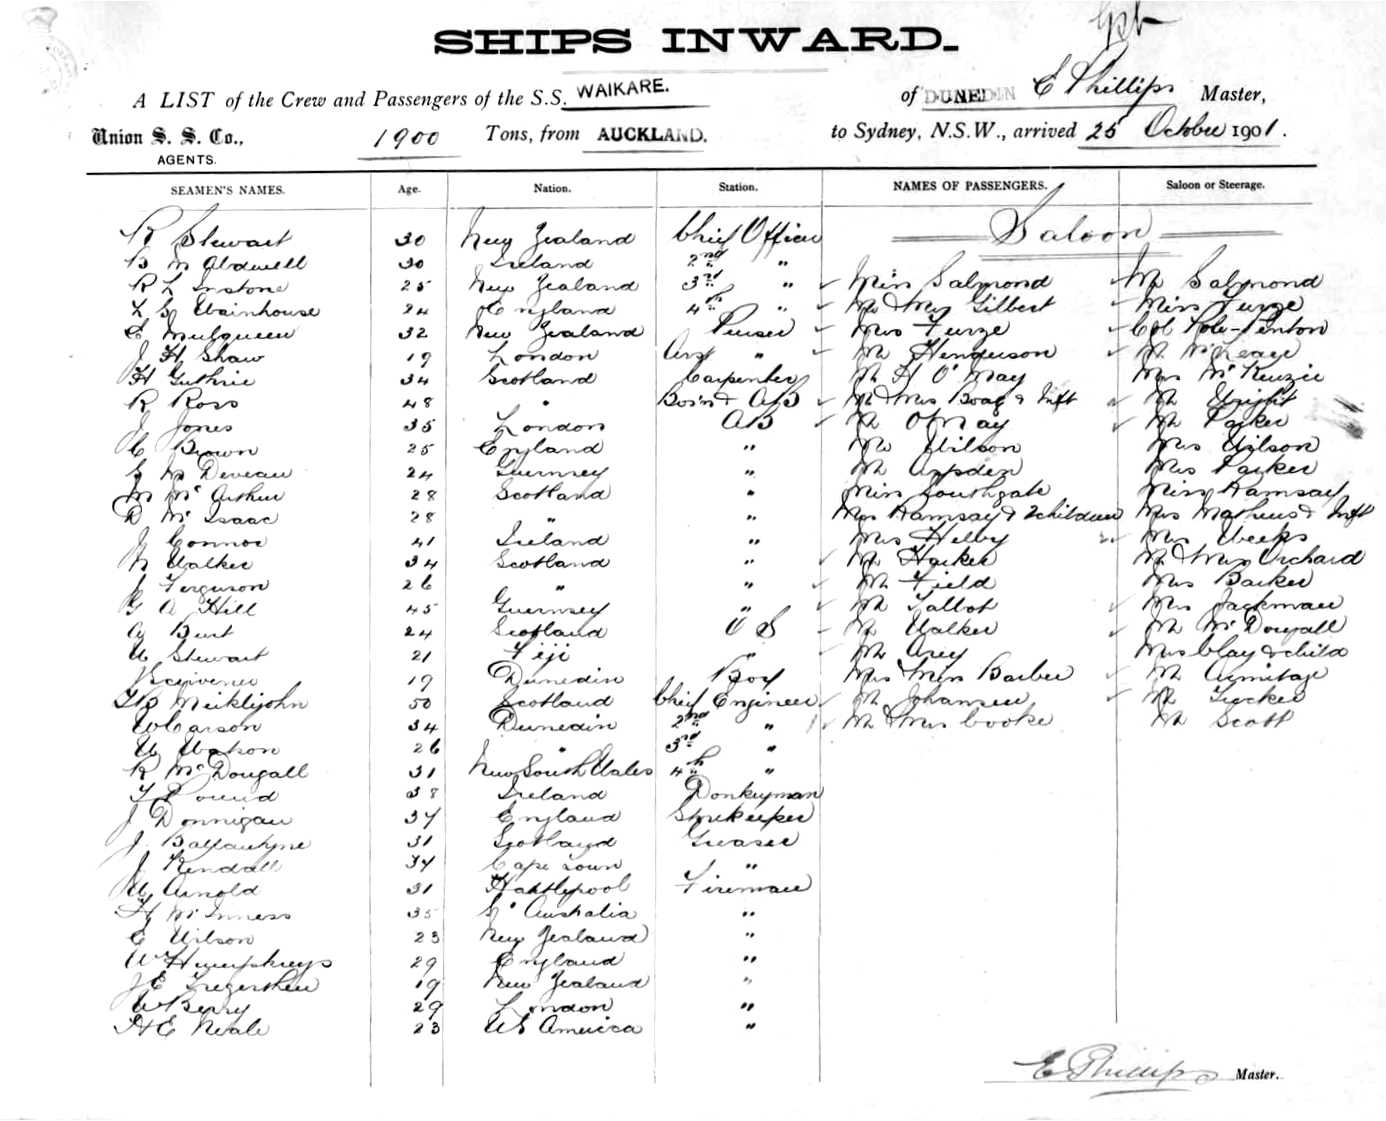 SHIPS INWARD.
A LIST of the Crew and Passengers of the S.S. WAIKARE. of DUNEDIN E Phillips Master,
Union S. S. Co., AGENTS. 1900 Tons, from AUCKLAND. to Sydney, N.S.W., arrived 25 October 1901.
SEAMEN'S NAMES. Age. Nation. Station. NAMES OF PASSENGERS. Saloon or Steerage.
R Stewart 30 New Zealand Chief Officer Saloon
30 Ireland 2nd "
R L Instone 25 New Zealand 3rd " Miss Salmond Mr Salmond
Wainhouse 24 England 4th " Mr & Mrs Gilbert Miss Furze
C Mulqueen 32 New Zealand Purser Mrs Furze Col Pole-Penton
J H Shaw 19 London Asst " Mr Henderson
H Guthrie 34 Scotland Carpenter Mr H O'May Mrs McKenzie
R Ross 48 " Bosn & AB Mr & Mrs Boag & Inft Mr Wright
J Jones 35 London AB Mr O'May Mr Parker
C Brown 25 England " Wilson Mrs Wilson
Deveau 24 Guernsey " Mr Aspden Mrs Parker
M McArthur 28 Scotland " Miss Southgate Miss Ramsay
D McIsaac 28 " " Mrs Ramsay & 2 children Mrs Matheus & Inft
J Connor 41 Ireland " Mrs Helby Mrs Weeks
N Walker 34 Scotland " Mr Harker Mr & Mrs Orchard
J Ferguson 26 " " Mr Field Mrs Barker
G A Hill 45 Guernsey " Mr Talbot Mrs Jackman
Burt 24 Scotland O S Mr Walker Mr McDougall
W Stewart 21 Fiji " Mr Arey Mrs Clay & child
Scrivener 19 Dunedin Boy Mrs & Miss Barber Mr Armitage
Meiklijohn 50 Scotland Chief Engineer Mr Johansen Mr Tucker
W Carson 34 Dunedin 2nd " Mr & Mrs Cooke Mr Scott
W Watson 26 " 3rd "
R McDougall 31 New South Wales 4th "
T Pound 38 Ireland Donkeyman
J Donnigan 34 England Storekeeper
J Ballantyne 31 Scotland Greaser
J Kendall 34 Cape Town "
W Arnold 31 Hartlepool Fireman
H McInness 35 S. Australia "
C Wilson 23 New Zealand "
W Humphreys 29 England "
J E Tregerthen 19 New Zealand "
W Berry 29 London "
H E Neale 23 US America "
E Phillips Master.